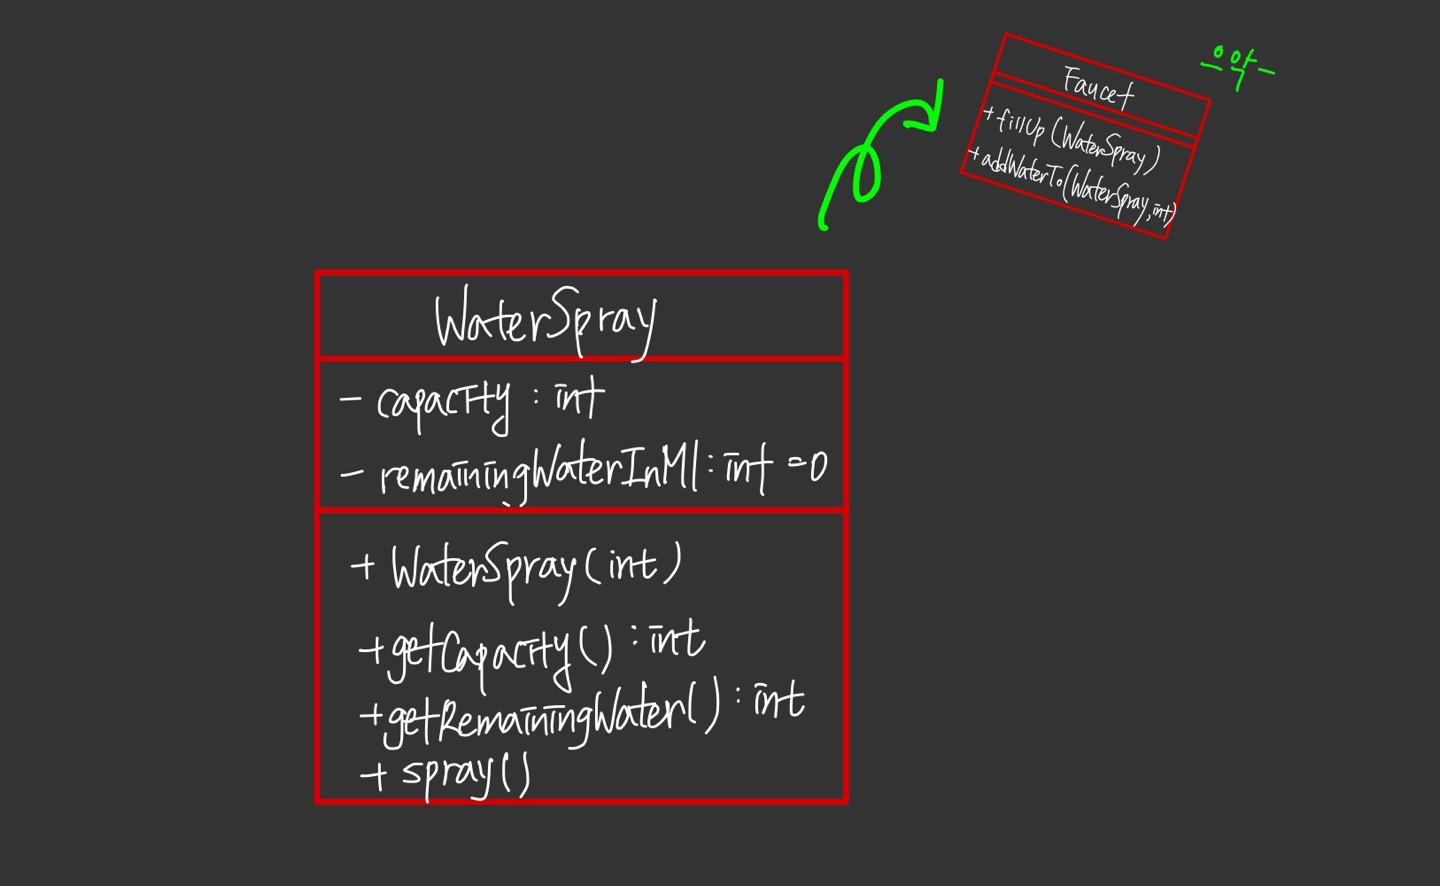 Faucet
+fillUp(WaterSpray)
+addWaterTo(WaterSpray,int)
으악-
WaterSpray
- capacity : int
- remainingWaterInMl : int =0
+ WaterSpray(int)
+getCapacity() : int
+getRemainingWater() : int
+ spray()